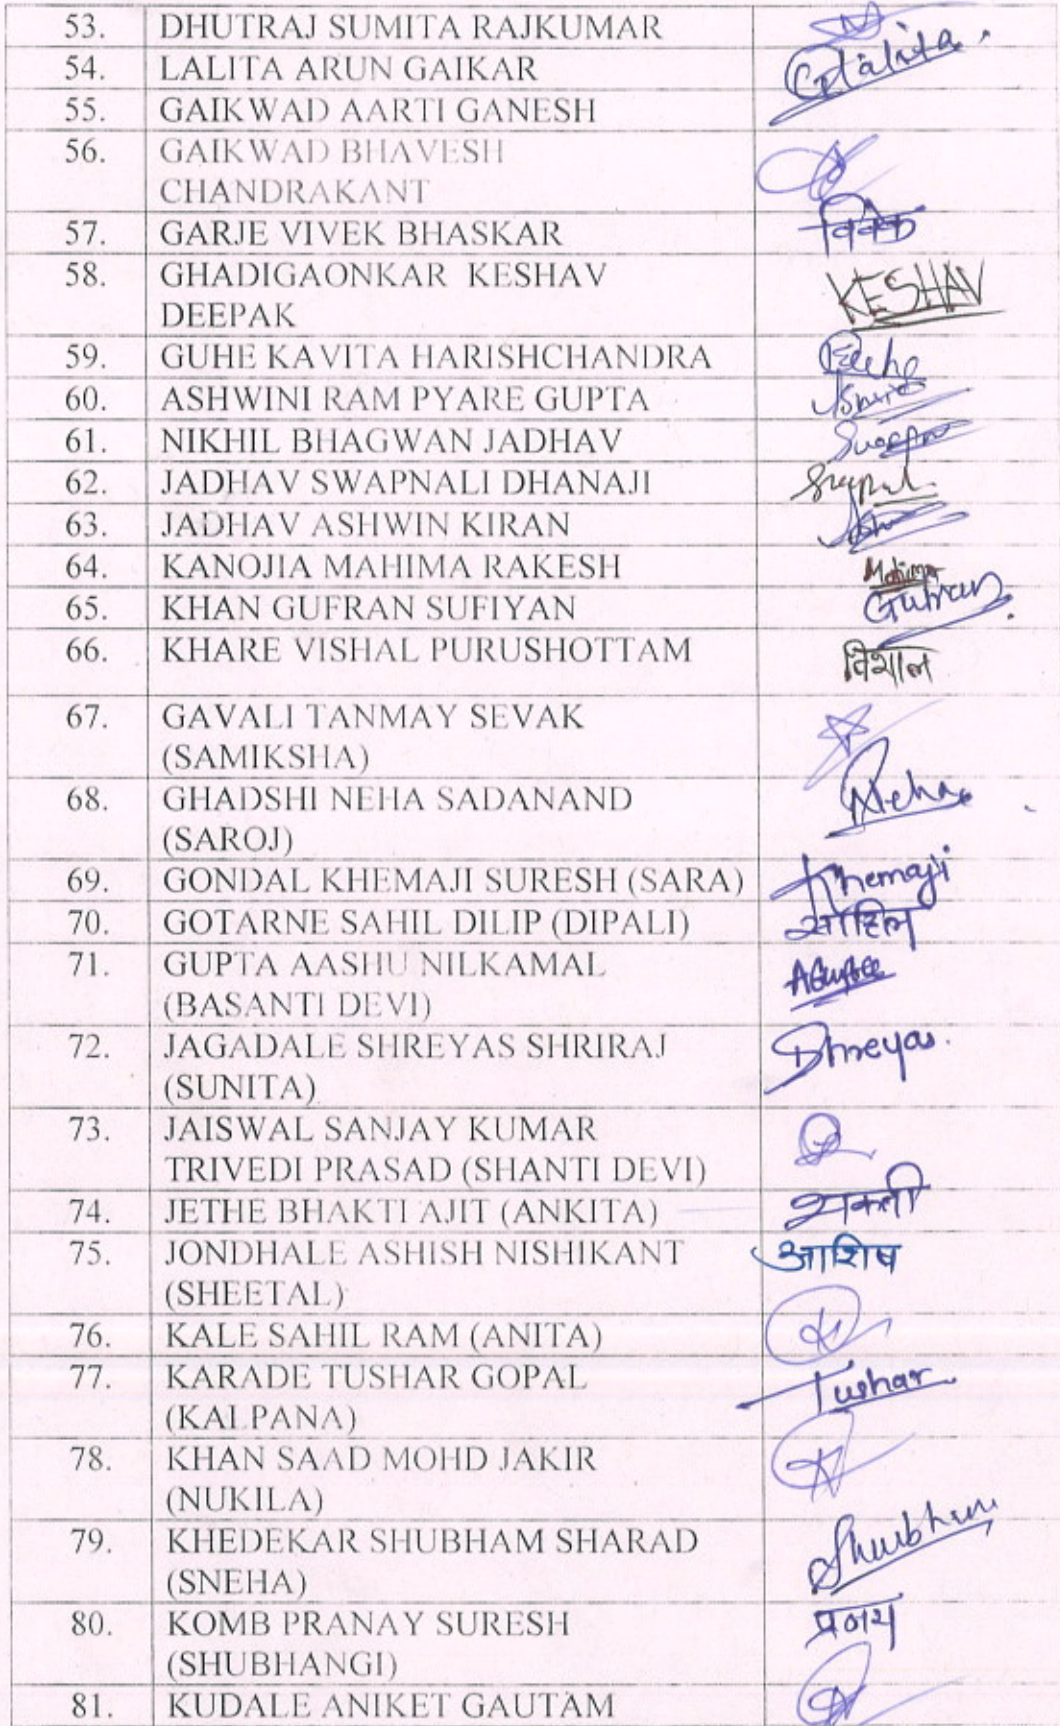 53. DHUTRAJ SUMITA RAJKUMAR
54. LALITA ARUN GAIKAR Lalita
55. GAIKWAD AARTI GANESH
56. GAIKWAD BHAVESH
CHANDRAKANT
57. GARJE VIVEK BHASKAR विवेक
58. GHADIGAONKAR KESHAV KESHAV
DEEPAK
59. GUHE KAVITA HARISHCHANDRA
60. ASHWINI RAM PYARE GUPTA
61. NIKHIL BHAGWAN JADHAV
62. JADHAV SWAPNALI DHANAJI
63. JADHAV ASHWIN KIRAN
64. KANOJIA MAHIMA RAKESH Mahima
65. KHAN GUFRAN SUFIYAN Gufran
66. KHARE VISHAL PURUSHOTTAM विशाल
67. GAVALI TANMAY SEVAK
(SAMIKSHA)
68. GHADSHI NEHA SADANAND Neha
(SAROJ)
69. GONDAL KHEMAJI SURESH (SARA) Khemaji
70. GOTARNE SAHIL DILIP (DIPALI) साहिल
71. GUPTA AASHU NILKAMAL AGupta
(BASANTI DEVI)
72. JAGADALE SHREYAS SHRIRAJ Shreyas
(SUNITA)
73. JAISWAL SANJAY KUMAR
TRIVEDI PRASAD (SHANTI DEVI)
74. JETHE BHAKTI AJIT (ANKITA)
75. JONDHALE ASHISH NISHIKANT आशिष
(SHEETAL)
76. KALE SAHIL RAM (ANITA)
77. KARADE TUSHAR GOPAL Tushar
(KALPANA)
78. KHAN SAAD MOHD JAKIR
(NUKILA)
79. KHEDEKAR SHUBHAM SHARAD Shubham
(SNEHA)
80. KOMB PRANAY SURESH प्रणय
(SHUBHANGI)
81. KUDALE ANIKET GAUTAM